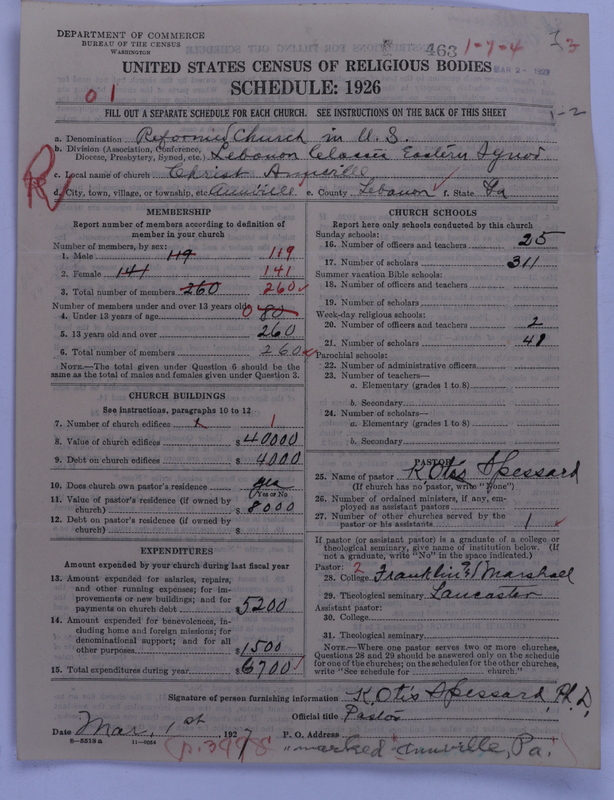 DEPARTMENT OF COMMERCE
BUREAU OF THE CENSUS
WASHINGTON
463 1-7-4
UNITED STATES CENSUS OF RELIGIOUS BODIES
MAR 2 - 1927
SCHEDULE: 1926
0 1
FILL OUT A SEPARATE SCHEDULE FOR EACH CHURCH. SEE INSTRUCTIONS ON THE BACK OF THIS SHEET
1-2
a. Denomination Reformed Church in U. S.
b. Division (Association, Conference, Diocese, Presbytery, Synod, etc.) Lebanon Classis Eastern Synod
c. Local name of church Christ Annville
d. City, town, village, or township, etc. Annville e. County Lebanon f. State Pa
MEMBERSHIP
Report number of members according to definition of
member in your church
Number of members, by sex:
1. Male 119 119
2. Female 141 141
3. Total number of members 260 260
Number of members under and over 13 years old:
4. Under 13 years of age 0 80
5. 13 years old and over 260
6. Total number of members 260
NOTE.—The total given under Question 6 should be
same as the total of males and females given under Question 3.
CHURCH BUILDINGS
See instructions, paragraphs 10 to 12
7. Number of church edifices 1 1
8. Value of church edifices $ 40000
9. Debt on church edifices $ 4000
10. Does church own pastor's residence? yes
(Yes or No)
11. Value of pastor's residence (if owned by
church) $ 8000
12. Debt on pastor's residence (if owned by
church) $
EXPENDITURES
Amount expended by your church during last fiscal year
13. Amount expended for salaries, repairs,
and other running expenses; for im-
provements or new buildings; and for
payments on church debt $ 5200
14. Amount expended for benevolences, in-
cluding home and foreign missions; for
denominational support; and for all
other purposes $ 1500
15. Total expenditures during year $ 6700
CHURCH SCHOOLS
Report here only schools conducted by this church
Sunday schools:
16. Number of officers and teachers 25
17. Number of scholars 311
Summer vacation Bible schools:
18. Number of officers and teachers
19. Number of scholars
Week-day religious schools:
20. Number of officers and teachers 2
21. Number of scholars 48
Parochial schools:
22. Number of administrative officers
23. Number of teachers—
a. Elementary (grades 1 to 8)
b. Secondary
24. Number of scholars—
a. Elementary (grades 1 to 8)
b. Secondary
PASTOR
25. Name of pastor K Otis Spessard
(If church has no pastor, write "None")
26. Number of ordained ministers, if any, em-
ployed as assistant pastors
27. Number of other churches served by the
pastor or his assistants 1
If pastor (or assistant pastor) is a graduate of a college or
theological seminary, give name of institution below. (If
not a graduate, write "No" in the space indicated.)
Pastor: 2
28. College Franklin & Marshall
29. Theological seminary Lancaster
Assistant pastor:
30. College
31. Theological seminary
NOTE.—Where one pastor serves two or more churches,
Questions 28 and 29 should be answered only on the schedule
for one of the churches; on the schedules for the other churches,
write "See schedule for church."
Signature of person furnishing information K. Otis Spessard, Ph. D.
Official title Pastor
Date Mar. 1st 1927 P. O. Address Annville, Pa.
8-5518 a 11-9034
"marked"